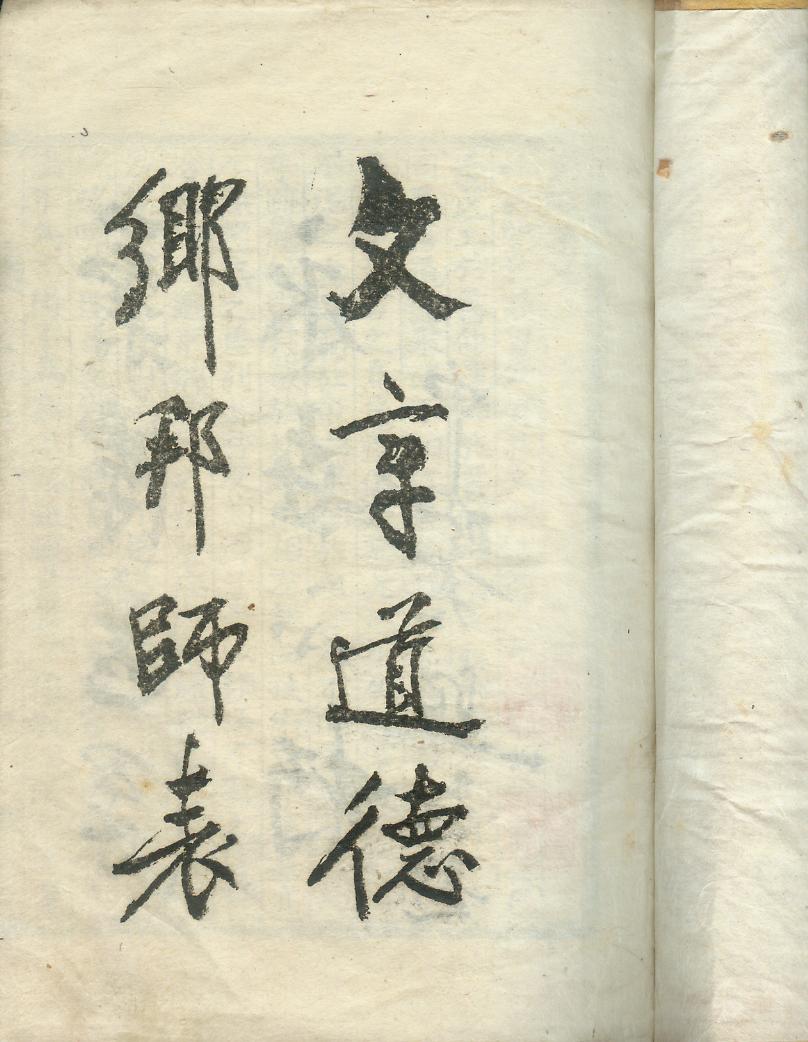 文章道德
鄉邦師表